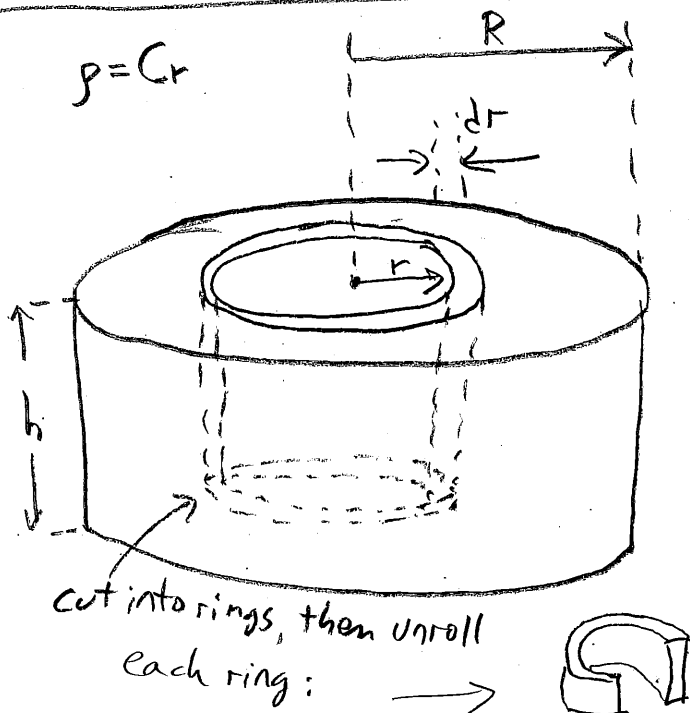 R
ρ = Cr
dr
r
h
cut into rings, then unroll
each ring: